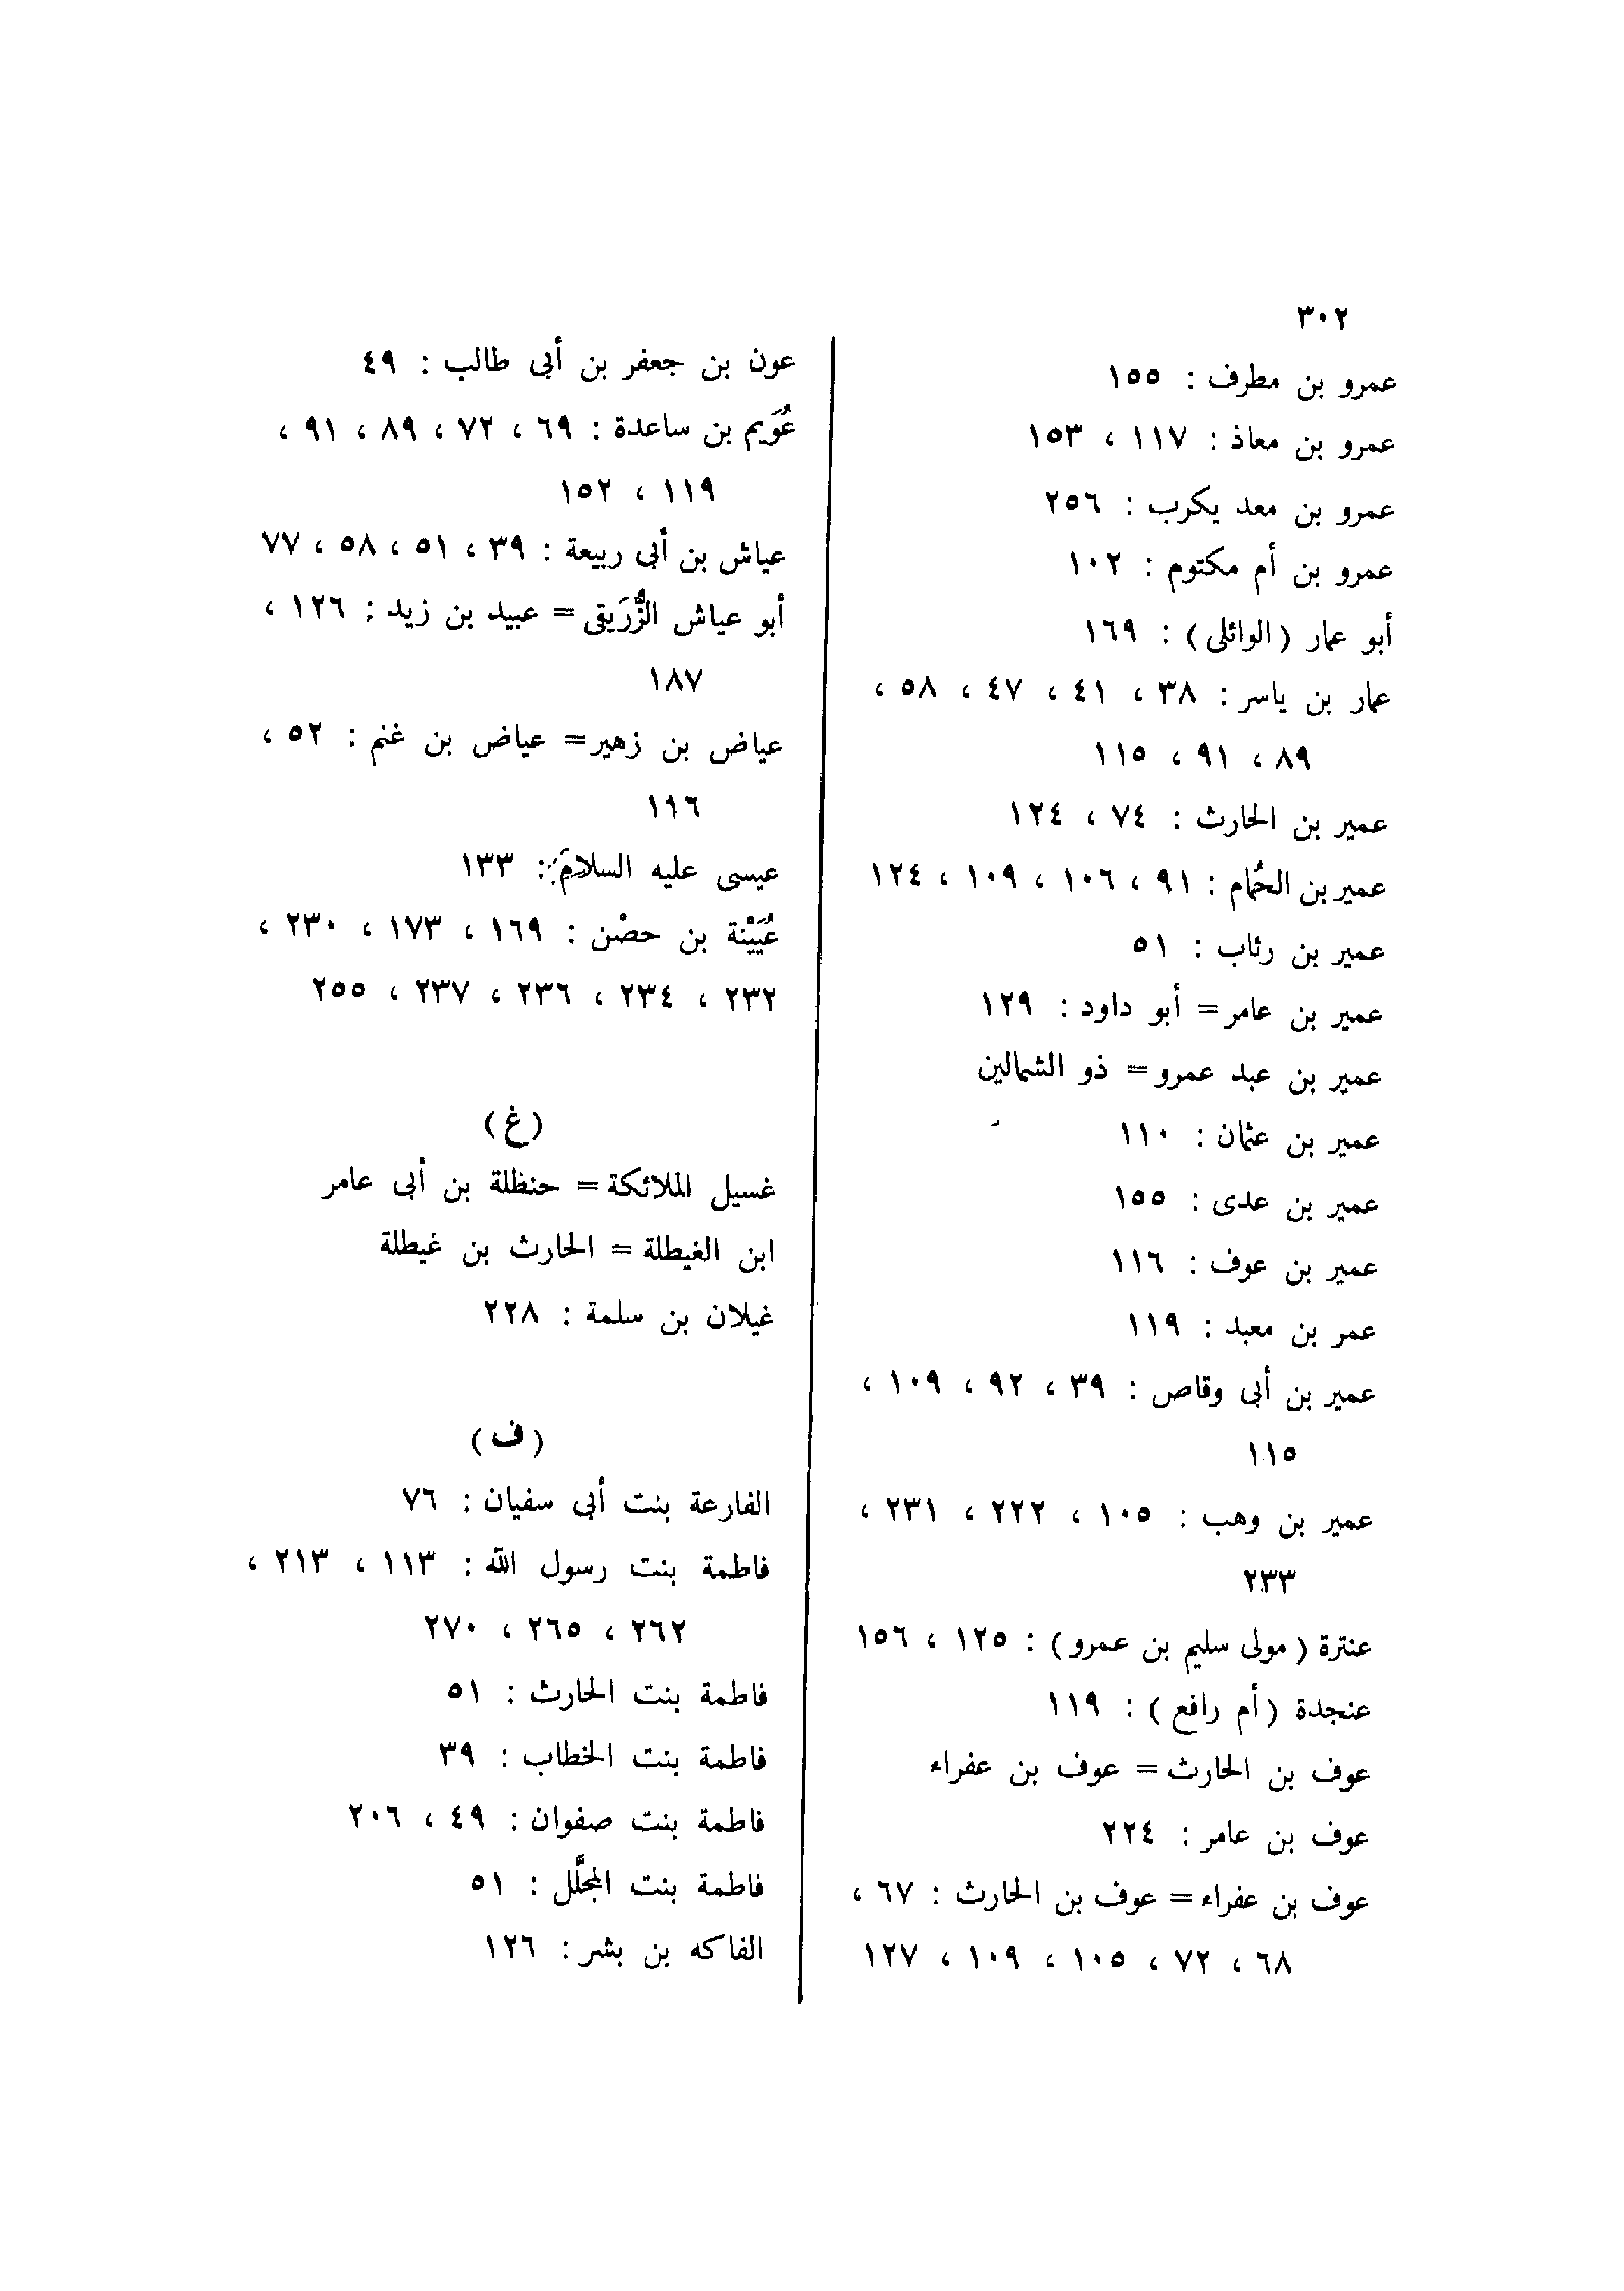 ٣٠٢
عمرو بن مطرف : ١٥٥
عمرو بن معاذ : ١١٧ ، ١٥٣
عمرو بن معد يكرب : ٢٥٦
عمرو بن أم مكتوم : ١٠٢
أبو عمار (الوائلى) : ١٦٩
عمار بن ياسر : ٣٨ ، ٤١ ، ٤٧ ، ٥٨ ،
٨٩ ، ٩١ ، ١١٥
عمير بن الحارث : ٧٤ ، ١٢٤
عمير بن الحُمام : ٩١ ، ١٠٦ ، ١٠٩ ، ١٢٤
عمير بن رئاب : ٥١
عمير بن عامر = أبو داود : ١٢٩
عمير بن عبد عمرو = ذو الشمالين
عمير بن عثمان : ١١٠
عمير بن عدى : ١٥٥
عمير بن عوف : ١١٦
عمر بن معبد : ١١٩
عمير بن أبى وقاص : ٣٩ ، ٩٢ ، ١٠٩ ،
١١٥
عمير بن وهب : ١٠٥ ، ٢٢٢ ، ٢٣١ ،
٢٣٣
عنترة ( مولى سليم بن عمرو ) : ١٢٥ ، ١٥٦
عنجدة ( أم رافع ) : ١١٩
عوف بن الحارث = عوف بن عفراء
عوف بن عامر : ٢٢٤
عوف بن عفراء = عوف بن الحارث : ٦٧ ،
٦٨ ، ٧٢ ، ١٠٥ ، ١٠٩ ، ١٢٧
عون بن جعفر بن أبى طالب : ٤٩
عُوَيم بن ساعدة : ٦٩ ، ٧٢ ، ٨٩ ، ٩١ ،
١١٩ ، ١٥٢
عياش بن أبى ربيعة : ٣٩ ، ٥١ ، ٥٨ ، ٧٧
أبو عياش الزُّرَيقى = عبيد بن زيد : ١٢٦ ،
١٨٧
عياض بن زهير = عياض بن غنم : ٥٢ ،
١١٦
عيسى عليه السلام : ١٣٣
عُيَيْنة بن حصْن : ١٦٩ ، ١٧٣ ، ٢٣٠ ،
٢٣٢ ، ٢٣٤ ، ٢٣٦ ، ٢٣٧ ، ٢٥٥
(غ)
غسيل الملائكة = حنظلة بن أبى عامر
ابن الغيطلة = الحارث بن غيطلة
غيلان بن سلمة : ٢٢٨
(ف)
الفارعة بنت أبى سفيان : ٧٦
فاطمة بنت رسول الله : ١١٣ ، ٢١٣ ،
٢٦٢ ، ٢٦٥ ، ٢٧٠
فاطمة بنت الحارث : ٥١
فاطمة بنت الخطاب : ٣٩
فاطمة بنت صفوان : ٤٩ ، ٢٠٦
فاطمة بنت المجلَّل : ٥١
الفاكه بن بشر : ١٢٦